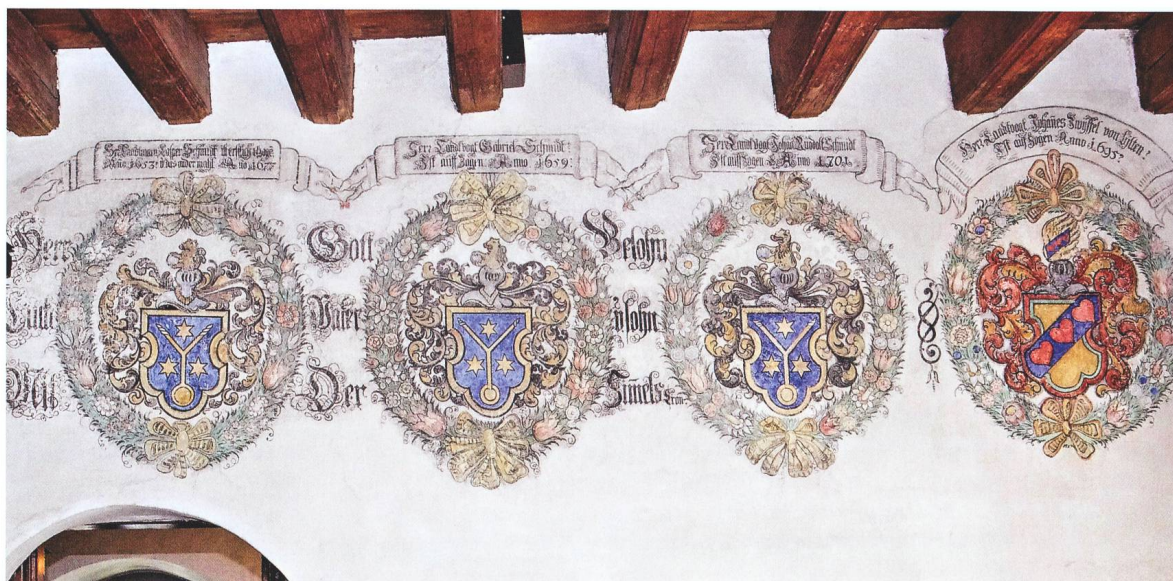 Hr. Landtaman Caspar Schmidt ist erstlich
Ano 1653 das ander mahl Ano 1677
Herr Landtvogt Gabriel Schmidt
Ist auff zogen Anno 1659
Herr Landtvogt Johan Rudolf Schmidt
Ist auff zogen Anno 1701
Her Landtvogt Johanes Zwyffel von Bilten
Ist auff zogen Anno 1695
Herr Gott Belohn
Vater
Mit Der Himels